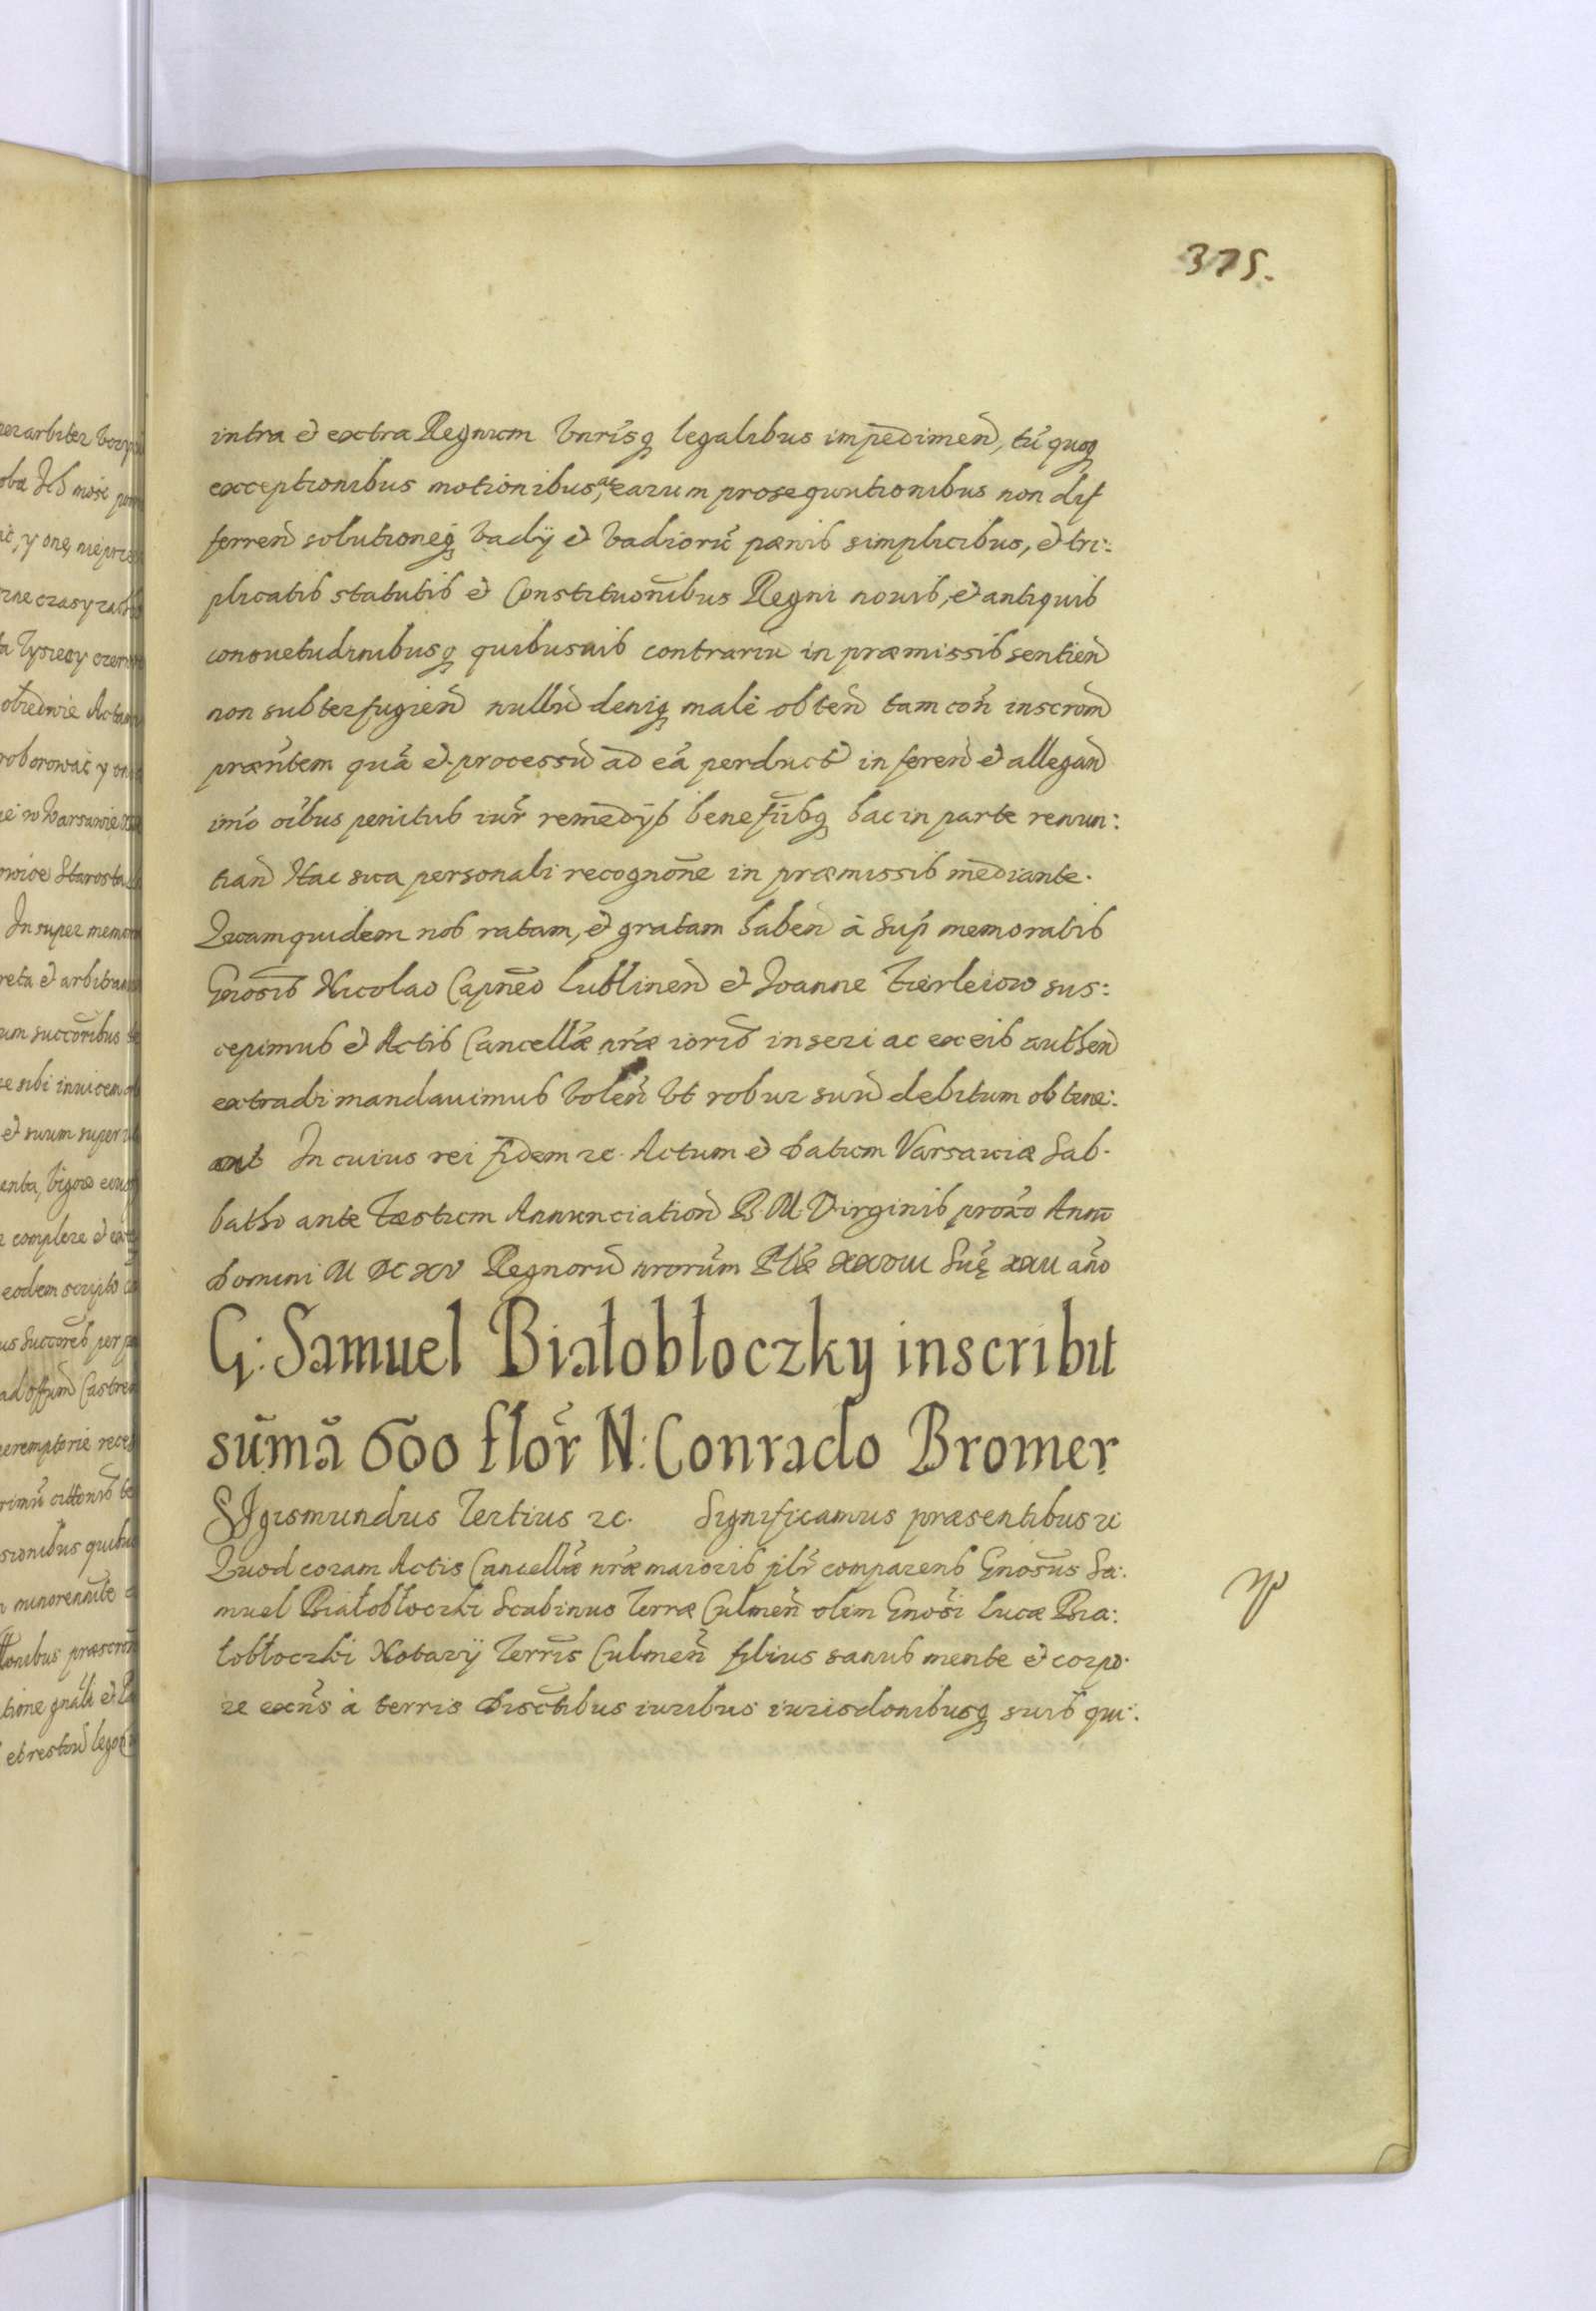 375.
intra et extra Regnum vnrisq legalibus impedimen, tu quoq
exceptionibus motionibus, ac earum prosequutionibus non dif
ferren solutioneq vadÿ et vadioru pænis simplicibus, et tri:
plicatis statutis et Constituonibus Regni nouis, et antiquis
consuetudinibusq quibusuis contrariu in præmissis sentien
non subterfugien nullu deniq malè obten tam con inscrom
præntem quā et processu ad eā perduct inferen et allegan
imo oibus penitus iur remedÿs benefiibq hac in parte renun:
tian Hac sua personali recognone in præmissis mediante.
Quamquidem nos ratam, et gratam haben à sup memoratis
Gnosis Nicolao Capneo Lublinen et Joanne Fierleiow sus:
cepimus et Actis Cancellæ nræ inseri ac ex eis authen
extradi mandauimus volen vt robur suu debitum obtene:
ant In cuius rei fidem ec. Actum et datum Varsauiæ Sab.
batho ante Fæstum Annunciation B. M. Virginis proxo Anno
Domini M DC XV Regnoru nrorum Pliæ XXVIII Suę XXII año
G: Samuel Białobłoczky inscribit
sūmā 600 flor N: Conrado Bromer
SIgismundus Tertius ec. Significamus præsentibus ec
Quod coram Actis Cancellæ nræ maioris plr comparens Gnosus Sa:
muel Białobłoczki Scabinus Terræ Culmen olim Gnosi Lucæ Bia:
łobłoczki Notarÿ Terris Culmen filius sanus mente et corpo.
re exns à terris disctibus iuribus iurisdonibusq suis qui: